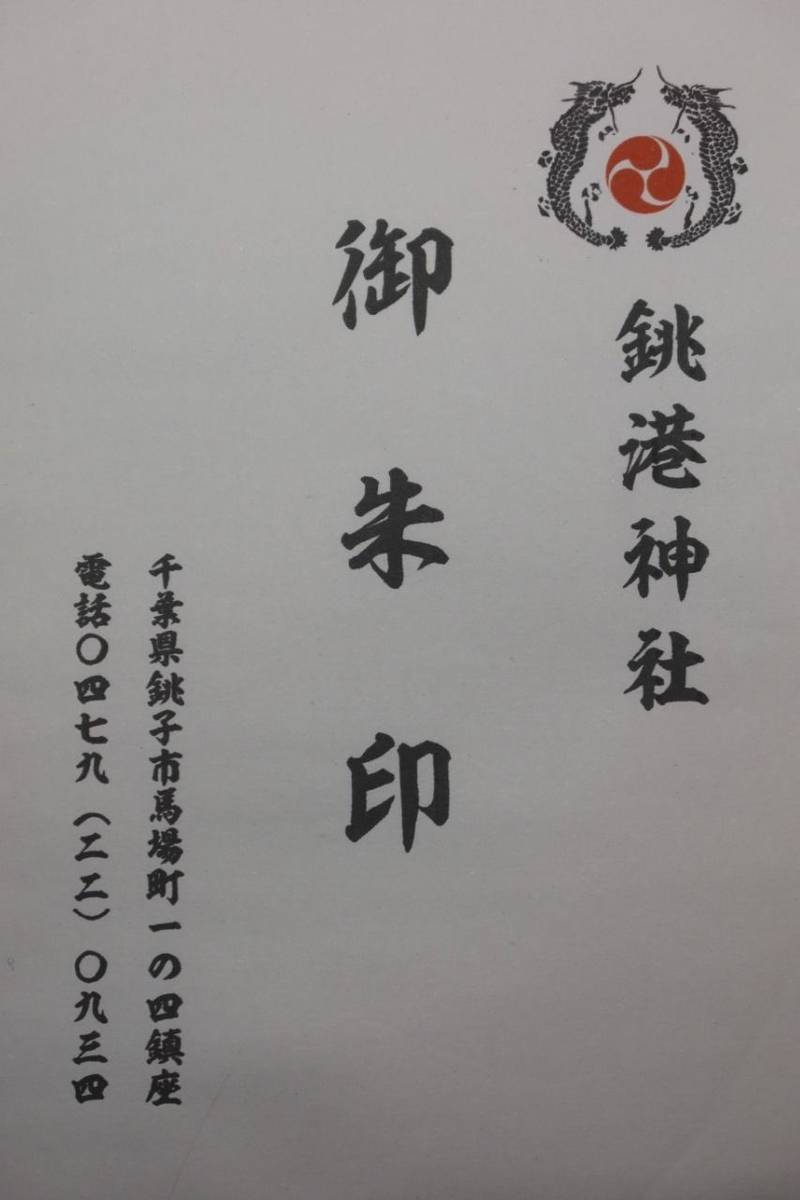 銚港神社
御朱印
千葉県銚子市馬場町一の四鎮座
電話〇四七九(二二)〇九三四